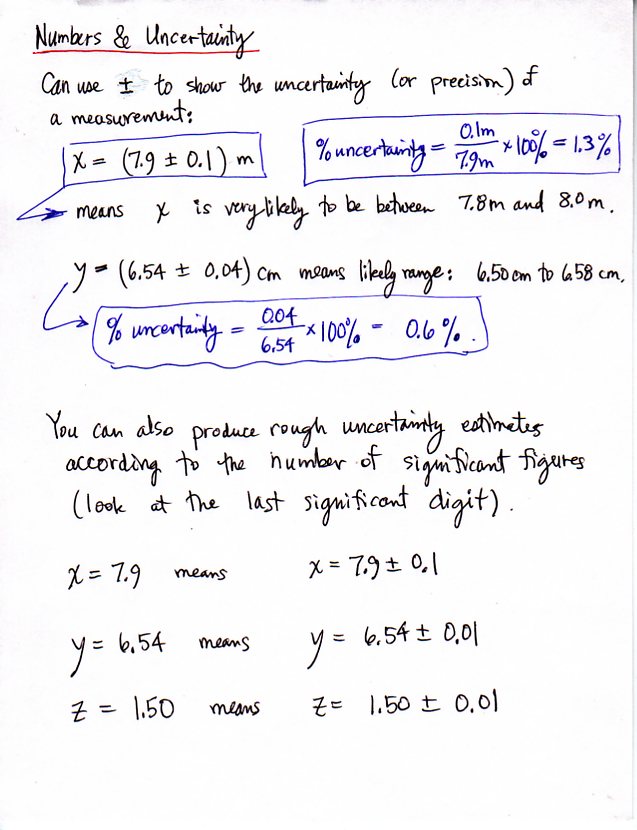 Numbers & Uncertainty
Can use ± to show the uncertainty (or precision) of
a measurement:
x = (7.9 ± 0.1) m
% uncertainty = 0.1m/7.9m × 100% = 1.3%
means x is very likely to be between 7.8m and 8.0m.
y = (6.54 ± 0.04) cm means likely range: 6.50cm to 6.58 cm.
% uncertainty = 0.04/6.54 × 100% = 0.6%.
You can also produce rough uncertainty estimates
according to the number of significant figures
(look at the last significant digit).
x = 7.9 means x = 7.9 ± 0.1
y = 6.54 means y = 6.54 ± 0.01
z = 1.50 means z = 1.50 ± 0.01